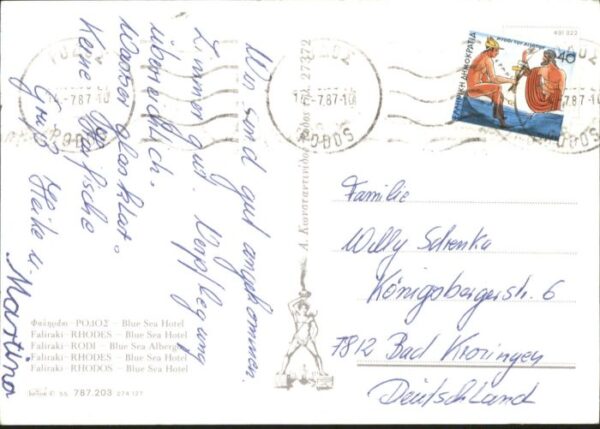 Wir sind gut angekommen.
Zimmer gut. Verpflegung
überreichlich.
Wasser glasklar.
Keine Haifische
Gruß Heike u.
Martina
Φαληράκι - ΡΟΔΟΣ - Blue Sea Hotel
Faliraki - RHODES - Blue Sea Hotel
Faliraki - RODI - Blue Sea Albergo
Faliraki - RHODES - Blue Sea Hotel
Faliraki - RHODOS - Blue Sea Hotel
© SS 787.203 274 127
Α. Κωνσταντινίδου Ρόδος τηλ. 27372
491 322
ΡΟΔΟΣ
7.87-10
RODOS
ΡΟΔΟΣ
7.87-10
RODOS
ΕΛΛΗΝΙΚΗ ΔΗΜΟΚΡΑΤΙΑ
40
Familie
Willy Schenka
Königsbergerstr. 6
7812 Bad Krozingen
Deutschland